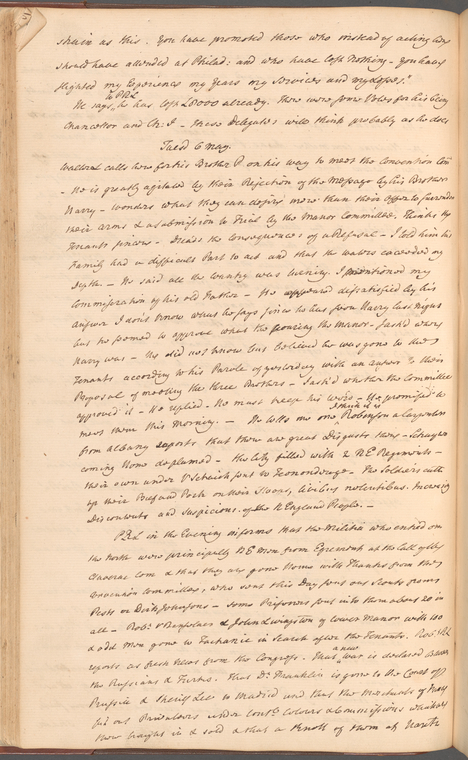 strain as this. You have promoted those who instead of acting as they
should have attended at Philad: and who have lost nothing - You have
slighted my Experience my Years my Services and my Losses."
He says to PRL he has lost £8000 already. There were some Votes for his being
Chancellor and Ch: J - These Delegates will think probably as he does
Tues. 6 May.
calls here for his Brother P on his way to meet the Convention Com
- He is greatly agitated by their Rejection of the Message by his Brother
Harry - wonders what they can desire more than their Offer to surrender
their arms & a Submission to Trial by the Manor Committee. Thinks the
Tenants sincere - Dreads the Consequences of a Refusal - I told him his
Family had a difficult Part to act and that the waters exceeded my
Depth - He said all the Country was . I mentioned my
Commiseration of his old Father - He appeared dissatisfied by his
Answer I don't know what he says since he has seen Harry last night
but he seemed to approve what the the Manor - I ask'd where
Harry was - He did not know but believed he was gone to the
Tenants according to his Parole of yesterday with an answer to their
Proposal of meeting the three Brothers - I ask'd whether the Committee
approved it - He replied - He must keep his word - He promised to
meet them this Morning. - He tells me one I think it is Robinson a Carpenter
from Albany reports that there are great Disgusts there - Schuyler
coming Home - the City filled with 2 NE Regiments -
their own under V Schaick sent to . The Soldiers cutt
up their Beef and Pork on their Stoops, . Increasing
Discontents and Suspicions of the N England People. -
PRL in the Evening informs that the Militia who enterd on
the North were principally NE Men from Egremont at the Call of the
Claverac Com & that they are gone Home with Thanks from the
Convention Committee, who sent this Day for our Scouts
Posts - Some Prisoners sent into them about 20 in
all - Robt V Renselaer & John Livingston of lower Manor with 40
odd Men gone to Tachanic in Search after the Tenants. Robt RL
reports as fresh News from the Congress. That a new War is declared between
the Russians & Turks. That Dr Franklin is gone to the Court of
Prussia & Arthur Lee to Madrid and that the Merchants of France
fit out Privateers under Contl Colours & Commissions which
there bought in & sold & that a knott of them at Nantz